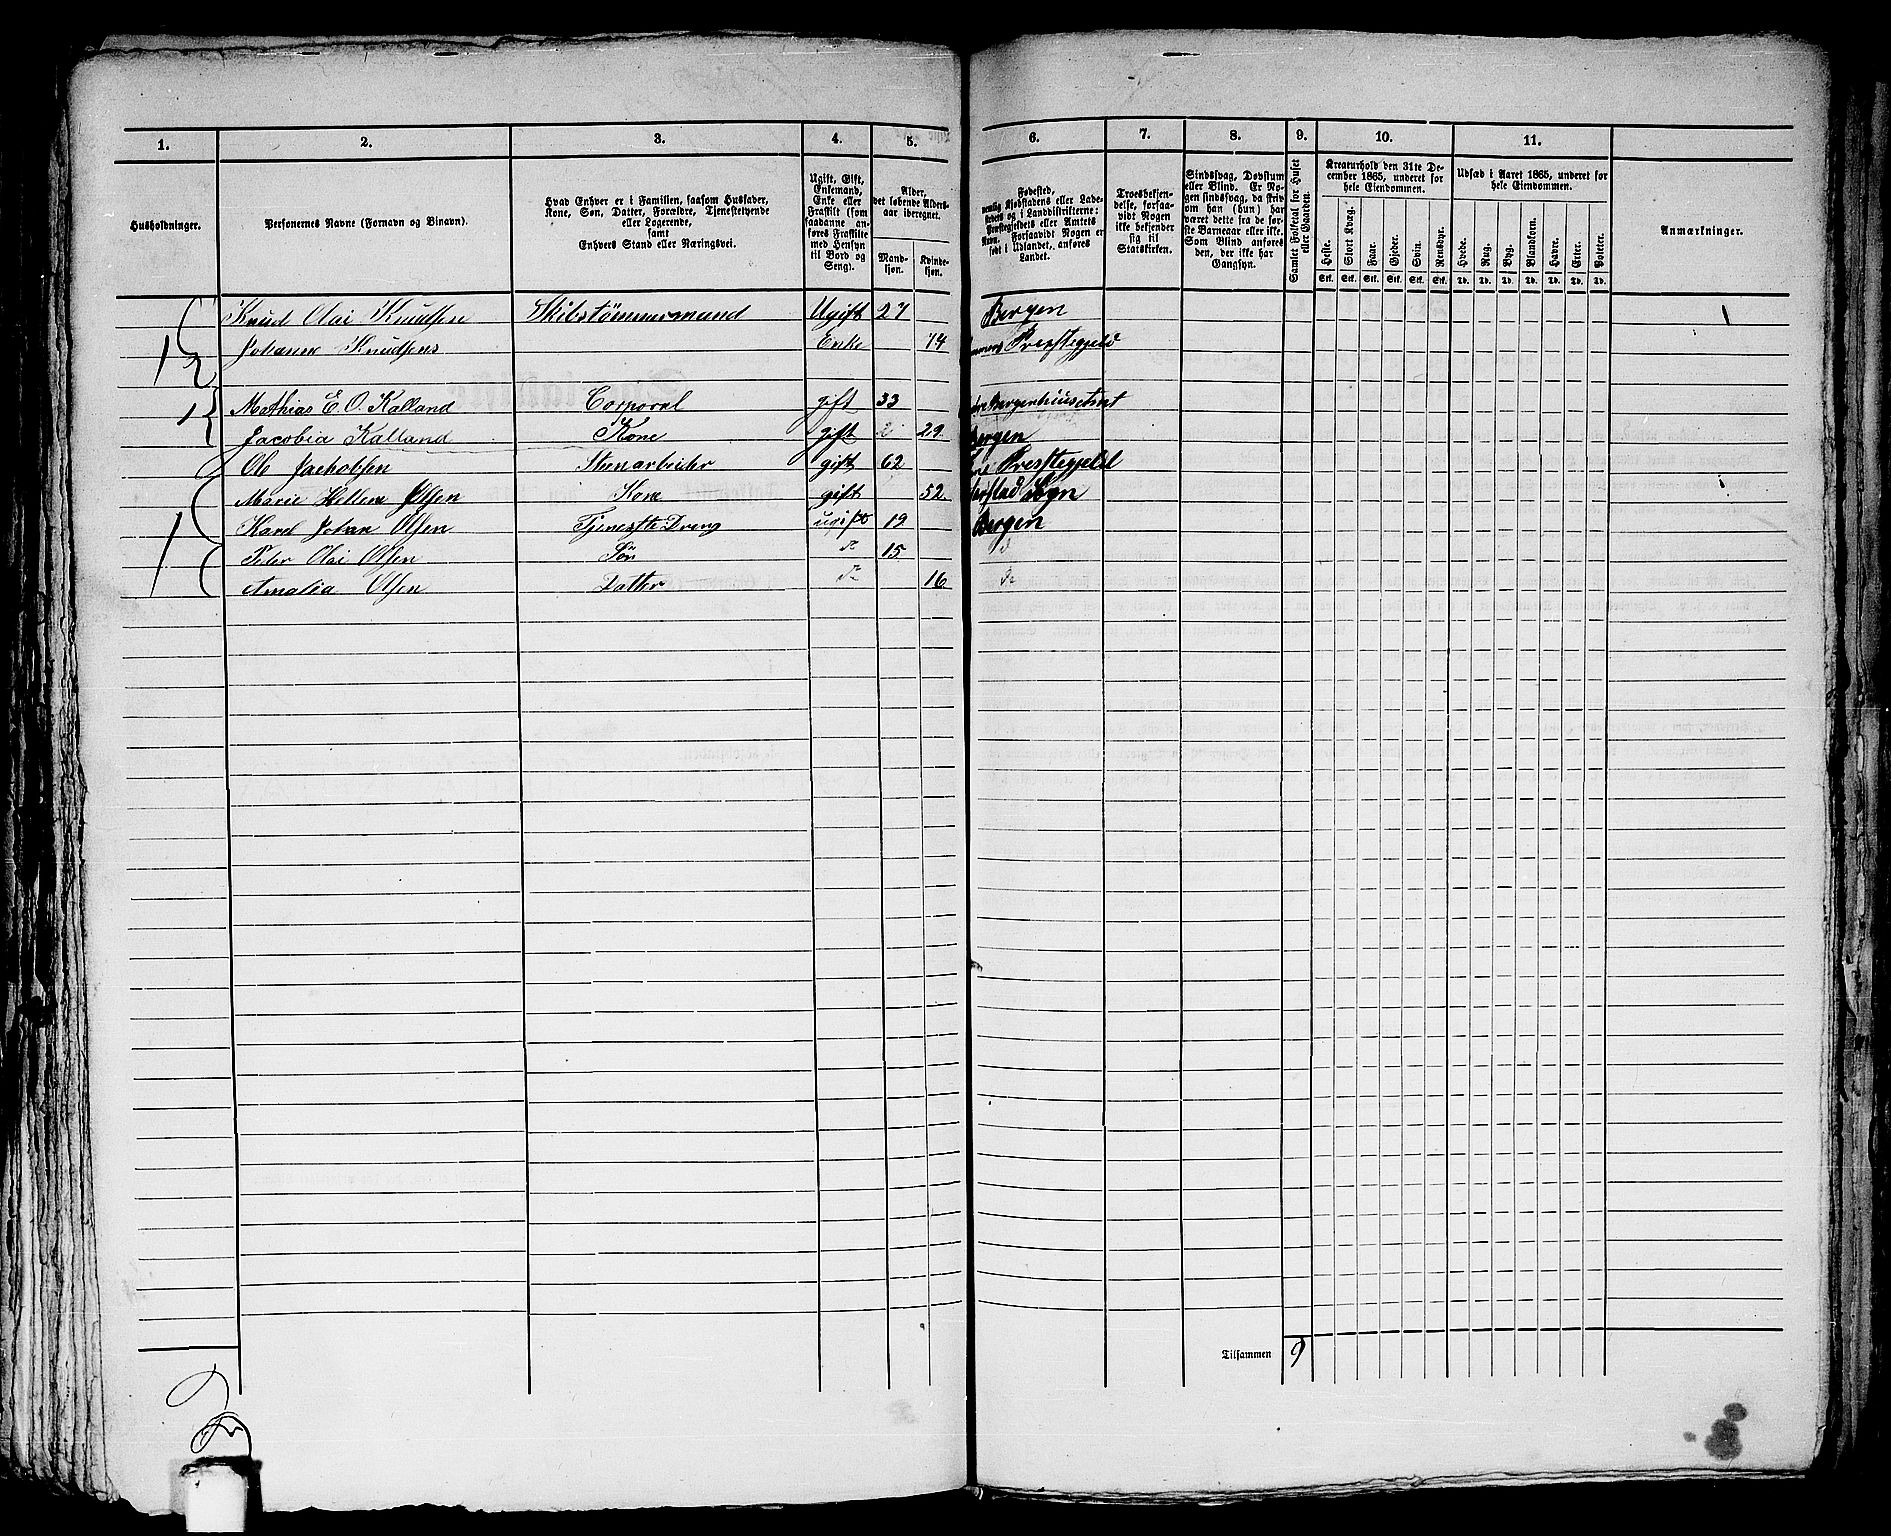 1. 2. 3. 4. 5. 6. 7. 8. 9. 10. 11.
Husholdninger.
Personernes Navne (Fornavn og Binavn).
Hvad Enhver er i Familien, saasom Husfader,
Kone, Søn, Datter, Forældre, Tjenestetyende
eller Logerende,
samt
Enhvers Stand eller Næringsvei.
Ugift, Gift,
Enkemand,
Enke eller
Fraskilt (som
saadanne an-
føres Fraskilte
med Hensyn
til Bord og
Seng).
Alder,
det løbende Alders-
aar iberegnet.
Mand-
kjøn.
Kvinde-
kjøn.
Fødested,
nemlig Kjøbstadens eller Lade-
stedets og i Landdistrikterne:
Præstegjeldets eller Amtets
Navn. Forsaavidt Nogen er
født i Udlandet, anføres
Landet.
Troesbekjen-
delse, forsaa-
vidt Nogen
ikke bekjender
sig til
Statskirken.
Sindssvag, Døvstum
eller Blind. Er No-
gen sindssvag, da skriv
om han (hun) har
været dette fra de før-
ste Barneaar eller ikke.
Som Blind anføres
den, der ikke har
Gangsyn.
Samlet Folketal for Huset
eller Gaarden.
Kreaturhold den 31te De-
cember 1865, underet for
hele Eiendommen.
Heste. Stort Kvæg. Faar. Gjeder. Svin. Rensdyr.
Stk. Stk. Stk. Stk. Stk. Stk.
Udsæd i Aaret 1865, underet for
hele Eiendommen.
Hvede. Rug. Byg. Blandkorn. Havre. Erter. Poteter.
Td. Td. Td. Td. Td. Td. Td.
Anmærkninger.
1 Knud Olai Knudsen Skibstømmermand Ugift 27 Bergen 1
Johanne Knudsens Enke 74 Præstegjeld
1 Mathias E. O. Kalland Corporal gift 33 Bergenhuus
Jacobia Kalland Kone gift 29 Bergen
1 Ole Jachobsen Stenarbeider gift 62 Præstegjeld
Marie Hellene Olsen Kone gift 52 1
Karel Johan Olsen Tjeneste Dreng ugift 19 Bergen
Peder Olai Olsen Søn do 15 do
Amalia Olsen Datter do 16 do
Tilsammen 9